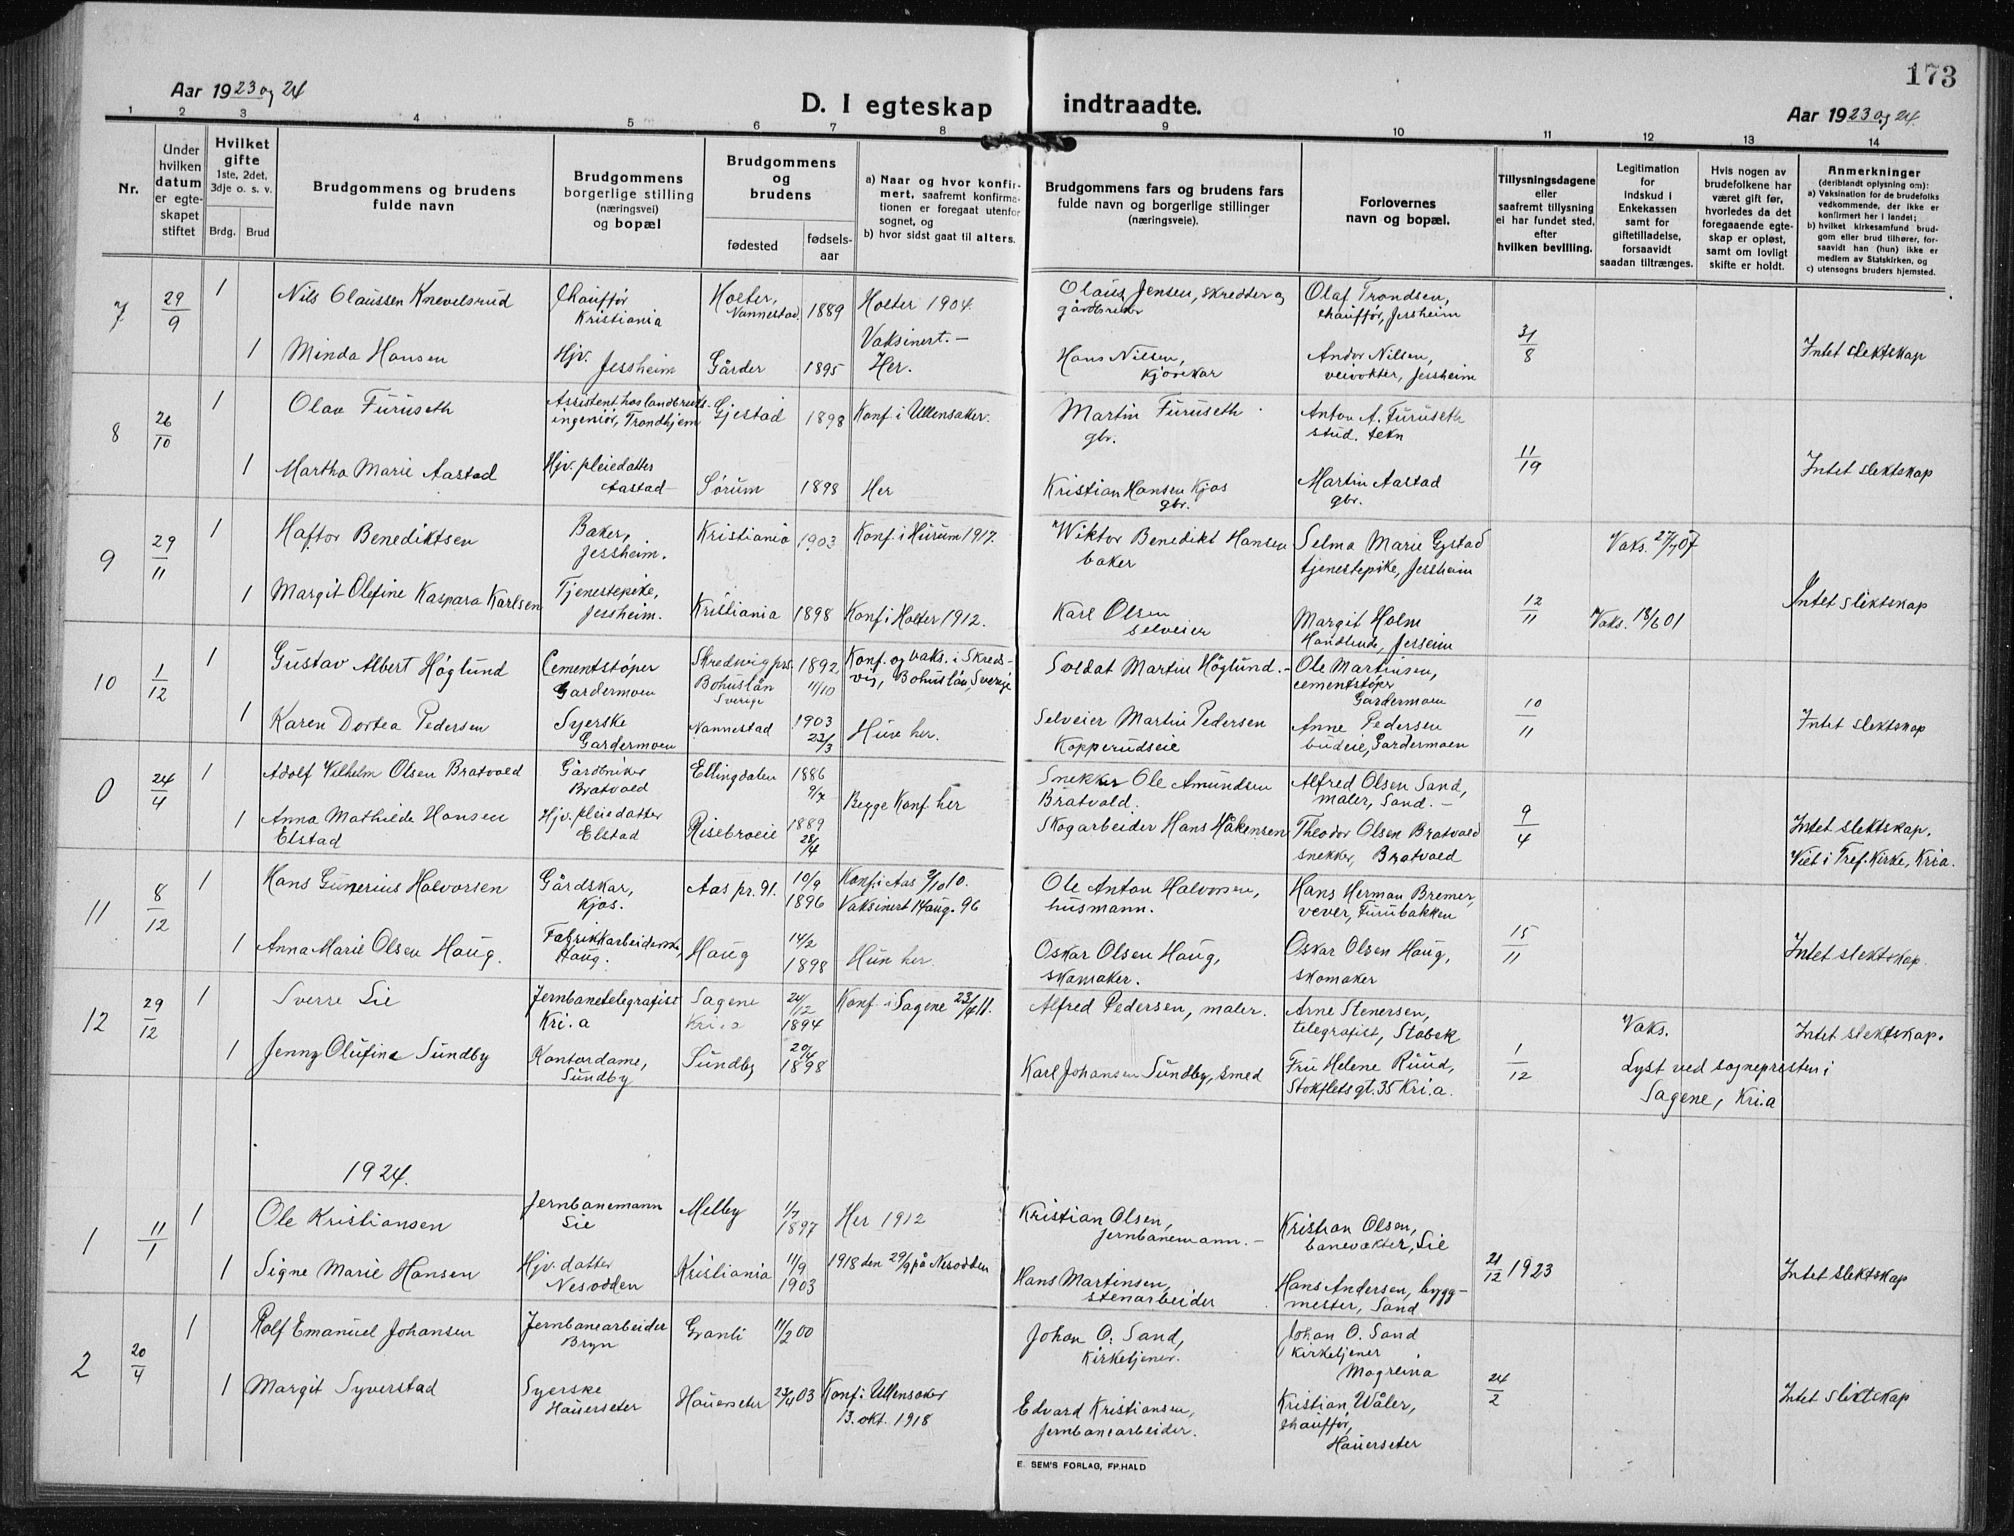 173
Aar 1923 og 24
D. I egteskap indtraadte.
Aar 1923 og 24.
1 2 3 4 5 6 7 8 9 10 11 12 13 14
Nr.
Under hvilken datum er egteskapet stiftet
Hvilket gifte 1ste, 2det, 3dje o. s. v.
Brdg. Brud
Brudgommens og brudens fulde navn
Brudgommens og brudens borgerlige stilling (næringsvei) og bopæl
Brudgommens og brudens
fødested
fødsels-aar
a) Naar og hvor konfirmert, saafremt konfirmationen er foregaat utenfor sognet, og
b) hvor sidst gaat til alters.
Brudgommens fars og brudens fars fulde navn og borgerlige stillinger (næringsveie).
Forlovernes navn og bopæl.
Tillysningsdagene eller saafremt tillysning ei har fundet sted, efter hvilken bevilling.
Legitimation for indskud i Enkekassen samt for giftetilladelse, forsaavidt saadan tiltrænges.
Hvis nogen av brudefolkene har været gift før, hvorledes da det foregaaende egteskap er opløst, samt om lovligt skifte er holdt.
Anmerkninger
(deriblandt oplysning om):
a) Vaksination for de brudefolks vedkommende, der ikke er konfirmert her i landet;
b) hvilket kirkesamfund brudgom eller brud tilhører, forsaavidt han (hun) ikke er medlem av Statskirken, og
c) utensogns bruders hjemsted.
7 29/9 1 Nils Claussen Knevelsrud Chauffør Kristiania Holter, Nannestad 1889 Holter 1904. Vaksinert.- Olaus Jensen, skredder og gårdbruker Olaf Trondsen, chauffør, Jessheim
1 Minda Hansen Hjv. Jessheim Gårder 1895 Her. Hans Nilsen, kjørekar Andor Nilsen, veivokter, Jessheim 31/8 Intet slektskap
8 26/10 1 Olav Furuseth Assistent hos landbruksingeniør, Trondhjem Gjestad 1898 Konf. i Ullensaker. Martin Furuseth gbr. Anton A. Furuseth stud. tekn
1 Martha Marie Aastad Hjv. pleiedatter Aastad Sørum 1898 Her Kristian Hansen Kjos gbr. Martin Aastad gbr. 11/19 Intet slektskap
9 29/11 1 Haftor Benediktsen Baker, Jessheim. Kristiania 1903 Konf. i Hurum 1917. Wiktor Benedikt Hansen baker Selma Marie Gystad tjenestepike, Jessheim Vaks. 27/7 07
1 Margit Olefine Kaspara Karlsen Tjenestepike, Jessheim. Kristiania 1898 Konf. i Holter 1912. Karl Olsen selveier Margit Holm Handlende, Jesseim 12/11 Vaks. 18/6 01 Intet slektskap
10 1/12 1 Gustav Albert Høglund Cementstøper Gardermoen Skredwig prs. Bohuslän Sverige 1892 11/10 Konf. og vaks. i Skredsvig, Bohuslän, Sverige Soldat Martin Høglund.- Ole Martinsen, cementstøper Gardermoen
1 Karen Dortea Pedersen Syerske Gardermoen Nannestad 1903 23/3 Hun her. Selveier Martin Pedersen Kopperudseie Anne Pedersen budeie, Gardermoen 10/11 Intet slektskap
0 24/4 1 Adolf Vilhelm Olsen Bratvold Gårdbruker Bratvold Ellingdalen 1886 9/7 Begge Konf. her Snekker Ole Amundsen Bratvold. Alfred Olsen Sand, maler, Sand.-
1 Anna Mathilde Hansen Elstad Hjv. pleiedatter Elstad Risebroeie 1889 28/4 Skogarbeider Hans Håkensen Theodor Olsen Bratvold snekker, Bratvold 9/4 Intet slektskap. Viet i Tref. kirke, Kria.
11 8/12 1 Hans Gunerius Halvorsen Gårdskar, Kjos. Aas pr.gj. 10/9 1896 Konf. i Aas 2/10 10. Vaksinert 14 aug. 96 Ole Anton Halvorsen, husmann. Hans Herman Bremer, vever, Furubakken
1 Anna Marie Olsen Haug. Fabrikkarbeiderske, Haug. Haug 14/2 1898 Hun her. Oskar Olsen Haug, skomaker. Oskar Olsen Haug, skomaker 15/11 Intet slektskap
12 29/12 1 Sverre Lie Jernbanetelegrafist Kri.a Sagene Kri.a 24/12 1894 Konf. i Sagene 23/4 11. Alfred Pedersen, maler. Arne Stenersen, telegrafist, Stabek Vaks. Intet slektskap.
1 Jenny Olufine Sundby Kontordame, Sundby Sundby 20/4 1898 Karl Johansen Sundby, smed Fru Helene Ruud, Stokfletsgt. 35 Kri.a. 1/12 Lyst ved sognepresten i Sagene, Kri.a
1924.
1 11/1 1 Ole Kristiansen Jernbanemann Lie Melby 1/7 1897 Her 1912 Kristian Olsen, jernbanemann.- Kristian Olsen, banevokter, Lie
1 Signe Marie Hansen Hjv. datter Nesodden Kristiania 11/9 1903 1918 den 29/9 på Nesodden Hans Martinsen, stenarbeider Hans Andersen, byggmester, Sand 21/12 1923 Intet slektskap
2 20/4 1 Rolf Emanuel Johansen Jernbanearbeider Bryn Granli 11/2 00 Johan O. Sand, Kirketjener. Johan O. Sand kirketjener Mogreina
1 Margit Syverstad Syerske Hauerseter Hauerseter 23/4 03 Konf. i Ullensaker 13. okt. 1918 Edvard Kristiansen, jernbanearbeider. Kristian Wåler, chauffør, Hauerseter 24/2 Intet slektskap
E. SEM'S FORLAG, FR.HALD